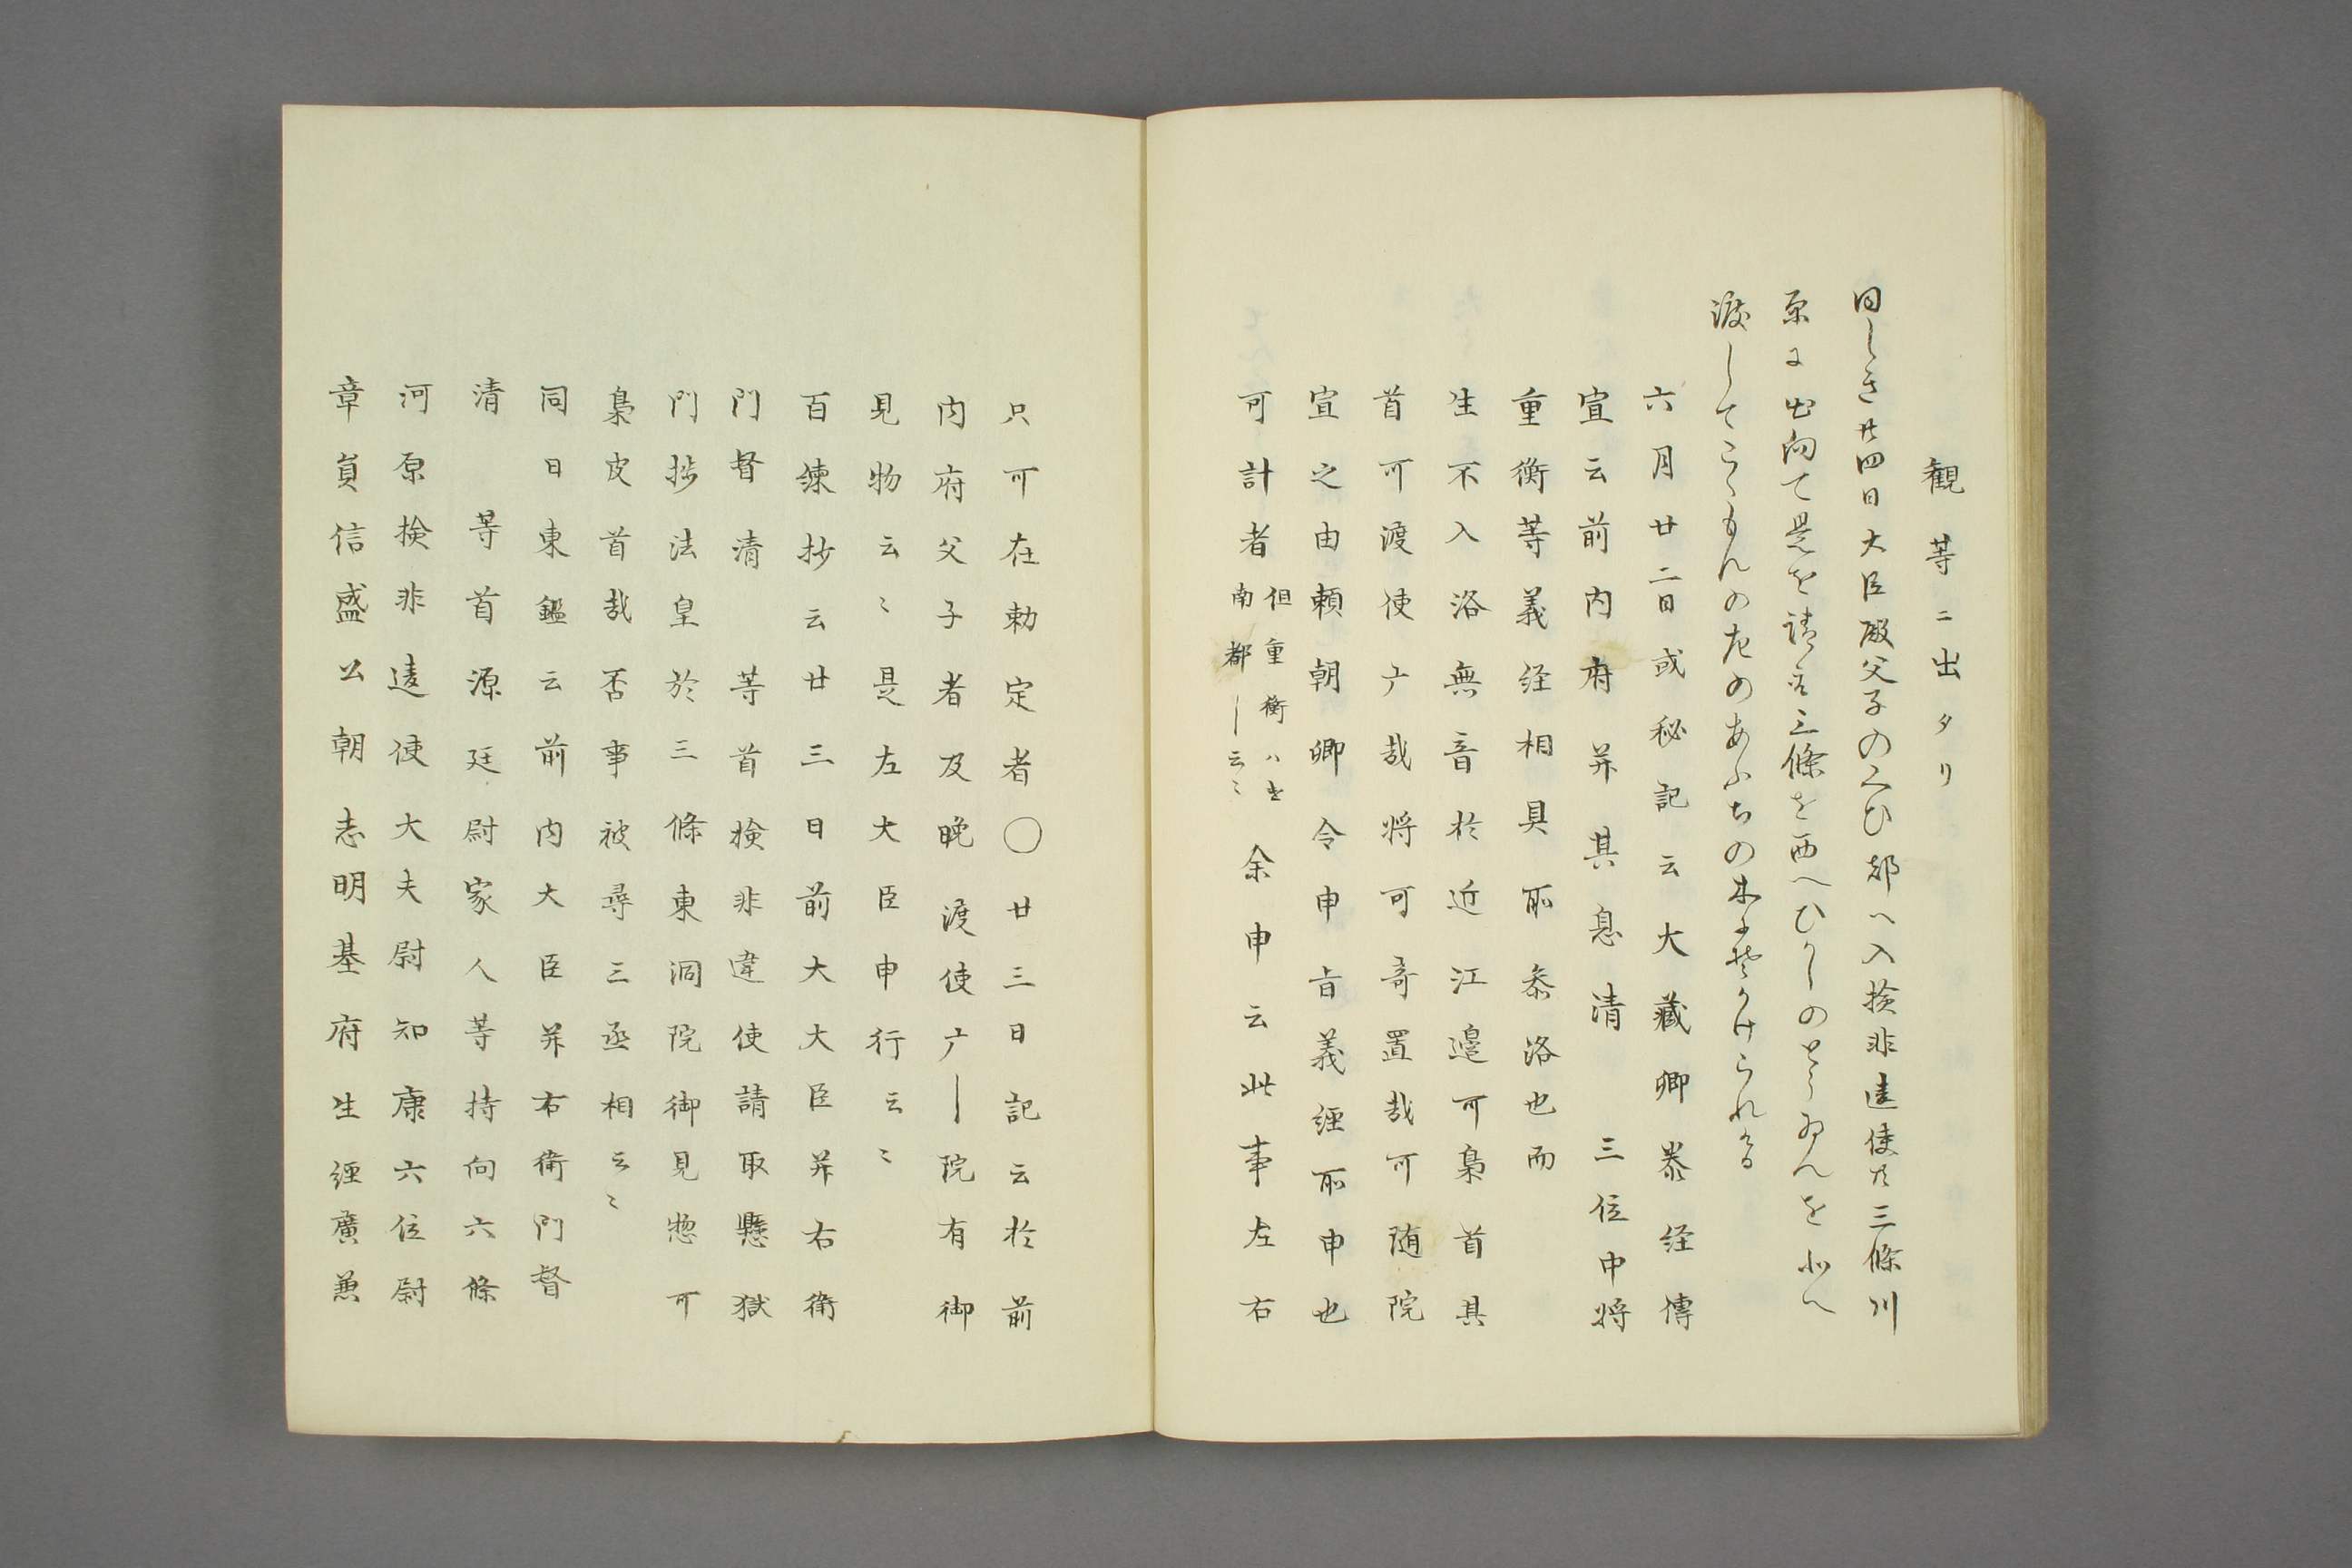 観等ニ出タリ
同しき廿四日大臣殿父子のくひ都へ入撿非違使共三條川
原に出向て是を請取三條を西へひかしのとうゐんを北へ
渡してこくもんの左のあふちの木にそかけられける
六月廿二日或秘記云大藏卿泰経傳
宣云前内府并其息清　三位中将
重衡等義経相具所参洛也而
生不入洛無音於近江邉可梟首其
首可渡使广哉将可奇置哉可随院
宣之由頼朝卿令申旨義經所申也
可計者但重衡ハ遣南都｜云〻余申云此事左右
只可在勅定者〇廿三日記云於前
内府父子者及晩渡使广｜院有御
見物云〻是左大臣申行云〻
百錬抄云廿三日前大大臣并右衛
門督清　等首撿非違使請取懸獄
門抄法皇於三條東洞院御見惣可
梟皮首哉否事被尋三丞相云〻
同日東鑑云前内大臣并右衛門督
清　等首源廷尉家人等持向六條
河原撿非違使大夫尉知康六位尉
章貞信盛公朝志明基府生經廣兼